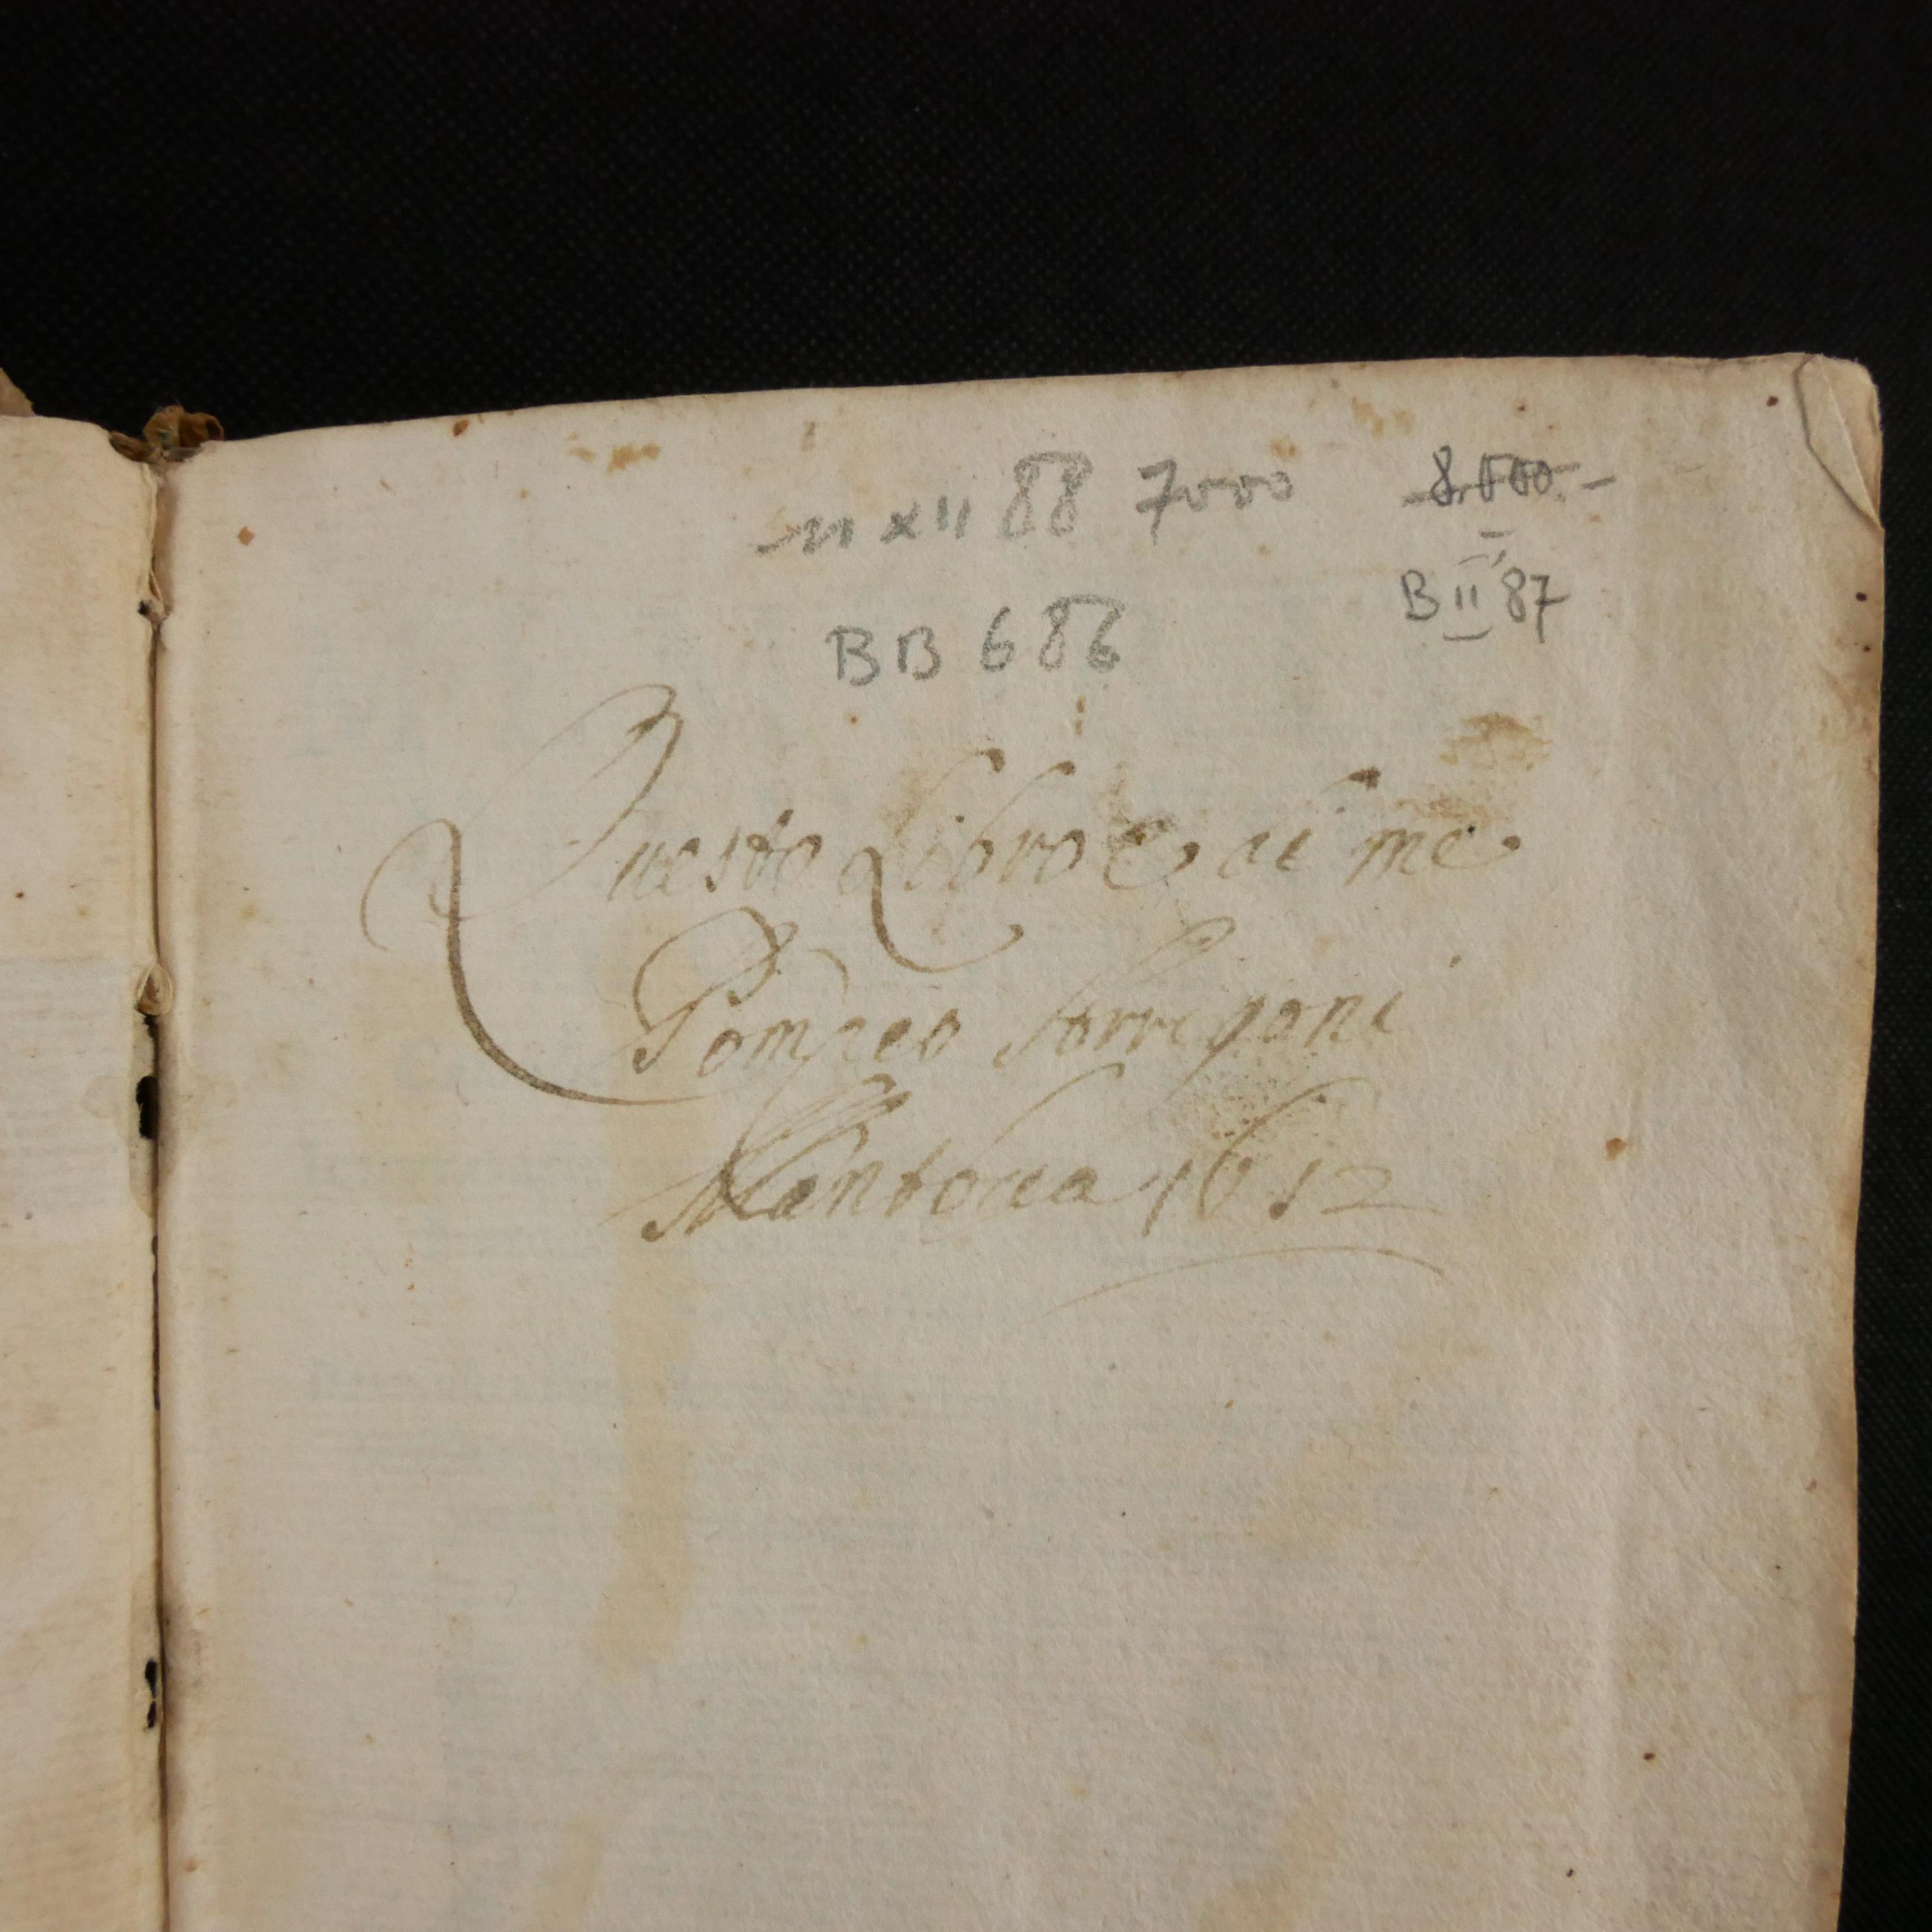 x II 88 7000
8.000.-
B II 87
BB 686
Questo Libro e di me
Pompeo Arrigoni
Mantoua 1612